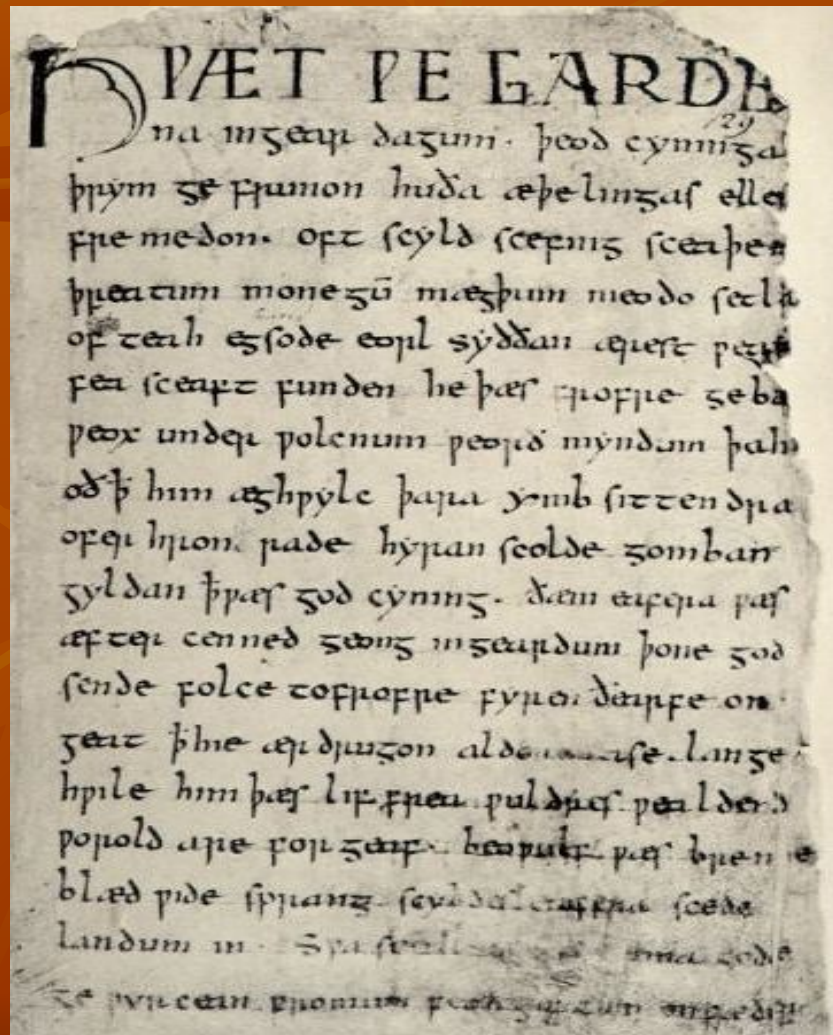 HǷÆT ǷE GARDE
na ingear dagum. þeod cyninga
þrym ge frunon huða æþelingas elle
fre medon. oft scyld scefing sceaþe
þreatum monegū mægþum meodo setla
of teah egsode eorl syððan ærest ƿea
fea sceaft funden he þæs frofre geba
ƿeox under ƿolcnum ƿeorð myndum þah
oð ꝥ him æghƿylc þara ymb sittendra
ofer hron rade hyran scolde gomban
gyldan ꝥ ƿæs god cyning. ðæm eafera ƿæs
æfter cenned geong ingeardum þone god
sende folce tofrofre fyren ðearfe on
geat ꝥ hie ær drugon aldor ase. lange
hƿile him þæs lif frea ƿuldres ƿealdend
ƿorold are for geaf. beoƿulf ƿæs breme
blæd ƿide sprang scyldes eafera scede
landum in. Sƿa sceal guma gode
ge ƿyrcean fromum feoh giftum